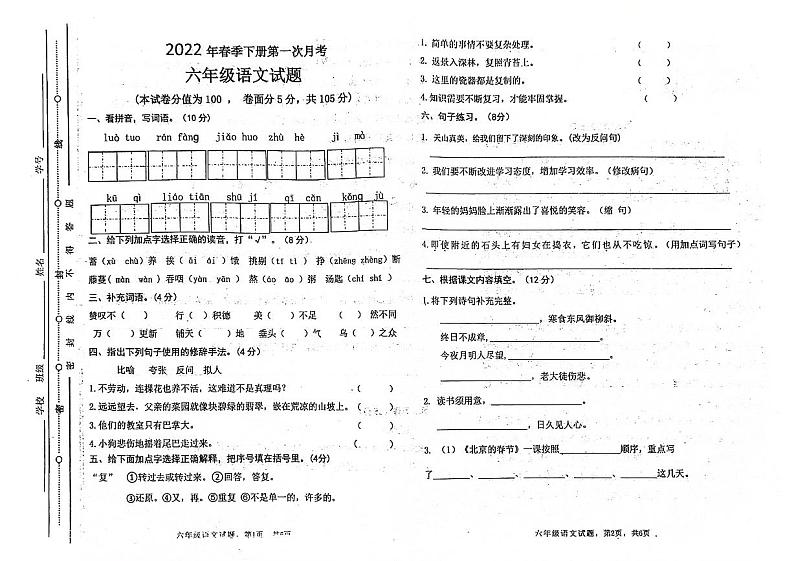 2022年春季下册第一次月考
六年级语文试题
(本试卷分值为100 , 卷面分5分,共105分)
一、看拼音,写词语。(10分)
luò tuo rán fàng jiāo huo zhǔ hè jì mò
kū qì liáo tiān shū jí qī cǎn kǒng jù
二、给下列加点字选择正确的读音,打"√"。(8分)
蓄(xù chù)养 挨(āi ái)饿 挑剔(tī tì) 挣(zhēng zhèng)断
藤蔓(màn wàn)吞咽(yàn yān) 熬(áo āo)粥 汤匙(chí shi)
三、补充词语。(4分)
赞叹不( ) 行( )积德 美( )不足 ( )然不同
万( )更新 铺天( )地 垂头( )气 乌( )之众
四、指出下列句子使用的修辞手法。(4分)
比喻 夸张 反问 拟人
1.不劳动,连棵花也养不活,这难道不是真理吗? ( )
2.远远望去,父亲的菜园就像块碧绿的翡翠,嵌在荒凉的山坡上。( )
3.他们的教室只有巴掌大。 ( )
4.小狗悲伤地摇着尾巴走过来。 ( )
五、给下面加点字选择正确解释,把序号填在括号里。(4分)
"复" ①转过去或转过来。②回答,答复。
③还原。④又,再。⑤重复 ⑥不是单一的,许多的。
六年级语文试题,第1页 共6页
1.简单的事情不要复杂处理。 ( )
2.返景入深林,复照青苔上。 ( )
3.这里的瓷器都是复制的。 ( )
4.知识需要不断复习,才能牢固掌握。 ( )
六、句子练习。(8分)
1. 天山真美,给我们留下了深刻的印象。(改为反问句)
2.我们要不断改进学习态度,增加学习效率。(修改病句)
3. 年轻的妈妈脸上渐渐露出了喜悦的笑容。(缩 句)
4.即使附近的石头上有妇女在捣衣,它们也从不吃惊。(用加点词写句子)
七、根据课文内容填空。(12分)
1.将下列诗句补充完整。
,寒食东风御柳斜。
终日不成章,
今夜月明人尽望,
,老大徒伤悲。
2. 读书须用意,
,日久见人心。
3.(1)《北京的春节》一课按照 顺序,重点写
了 、 、 、 、 这几天。
六年级语文试题,第2页,共6页
学校 班级 姓名 学号
密 封 线 内 不 得 答 题
密 封 线